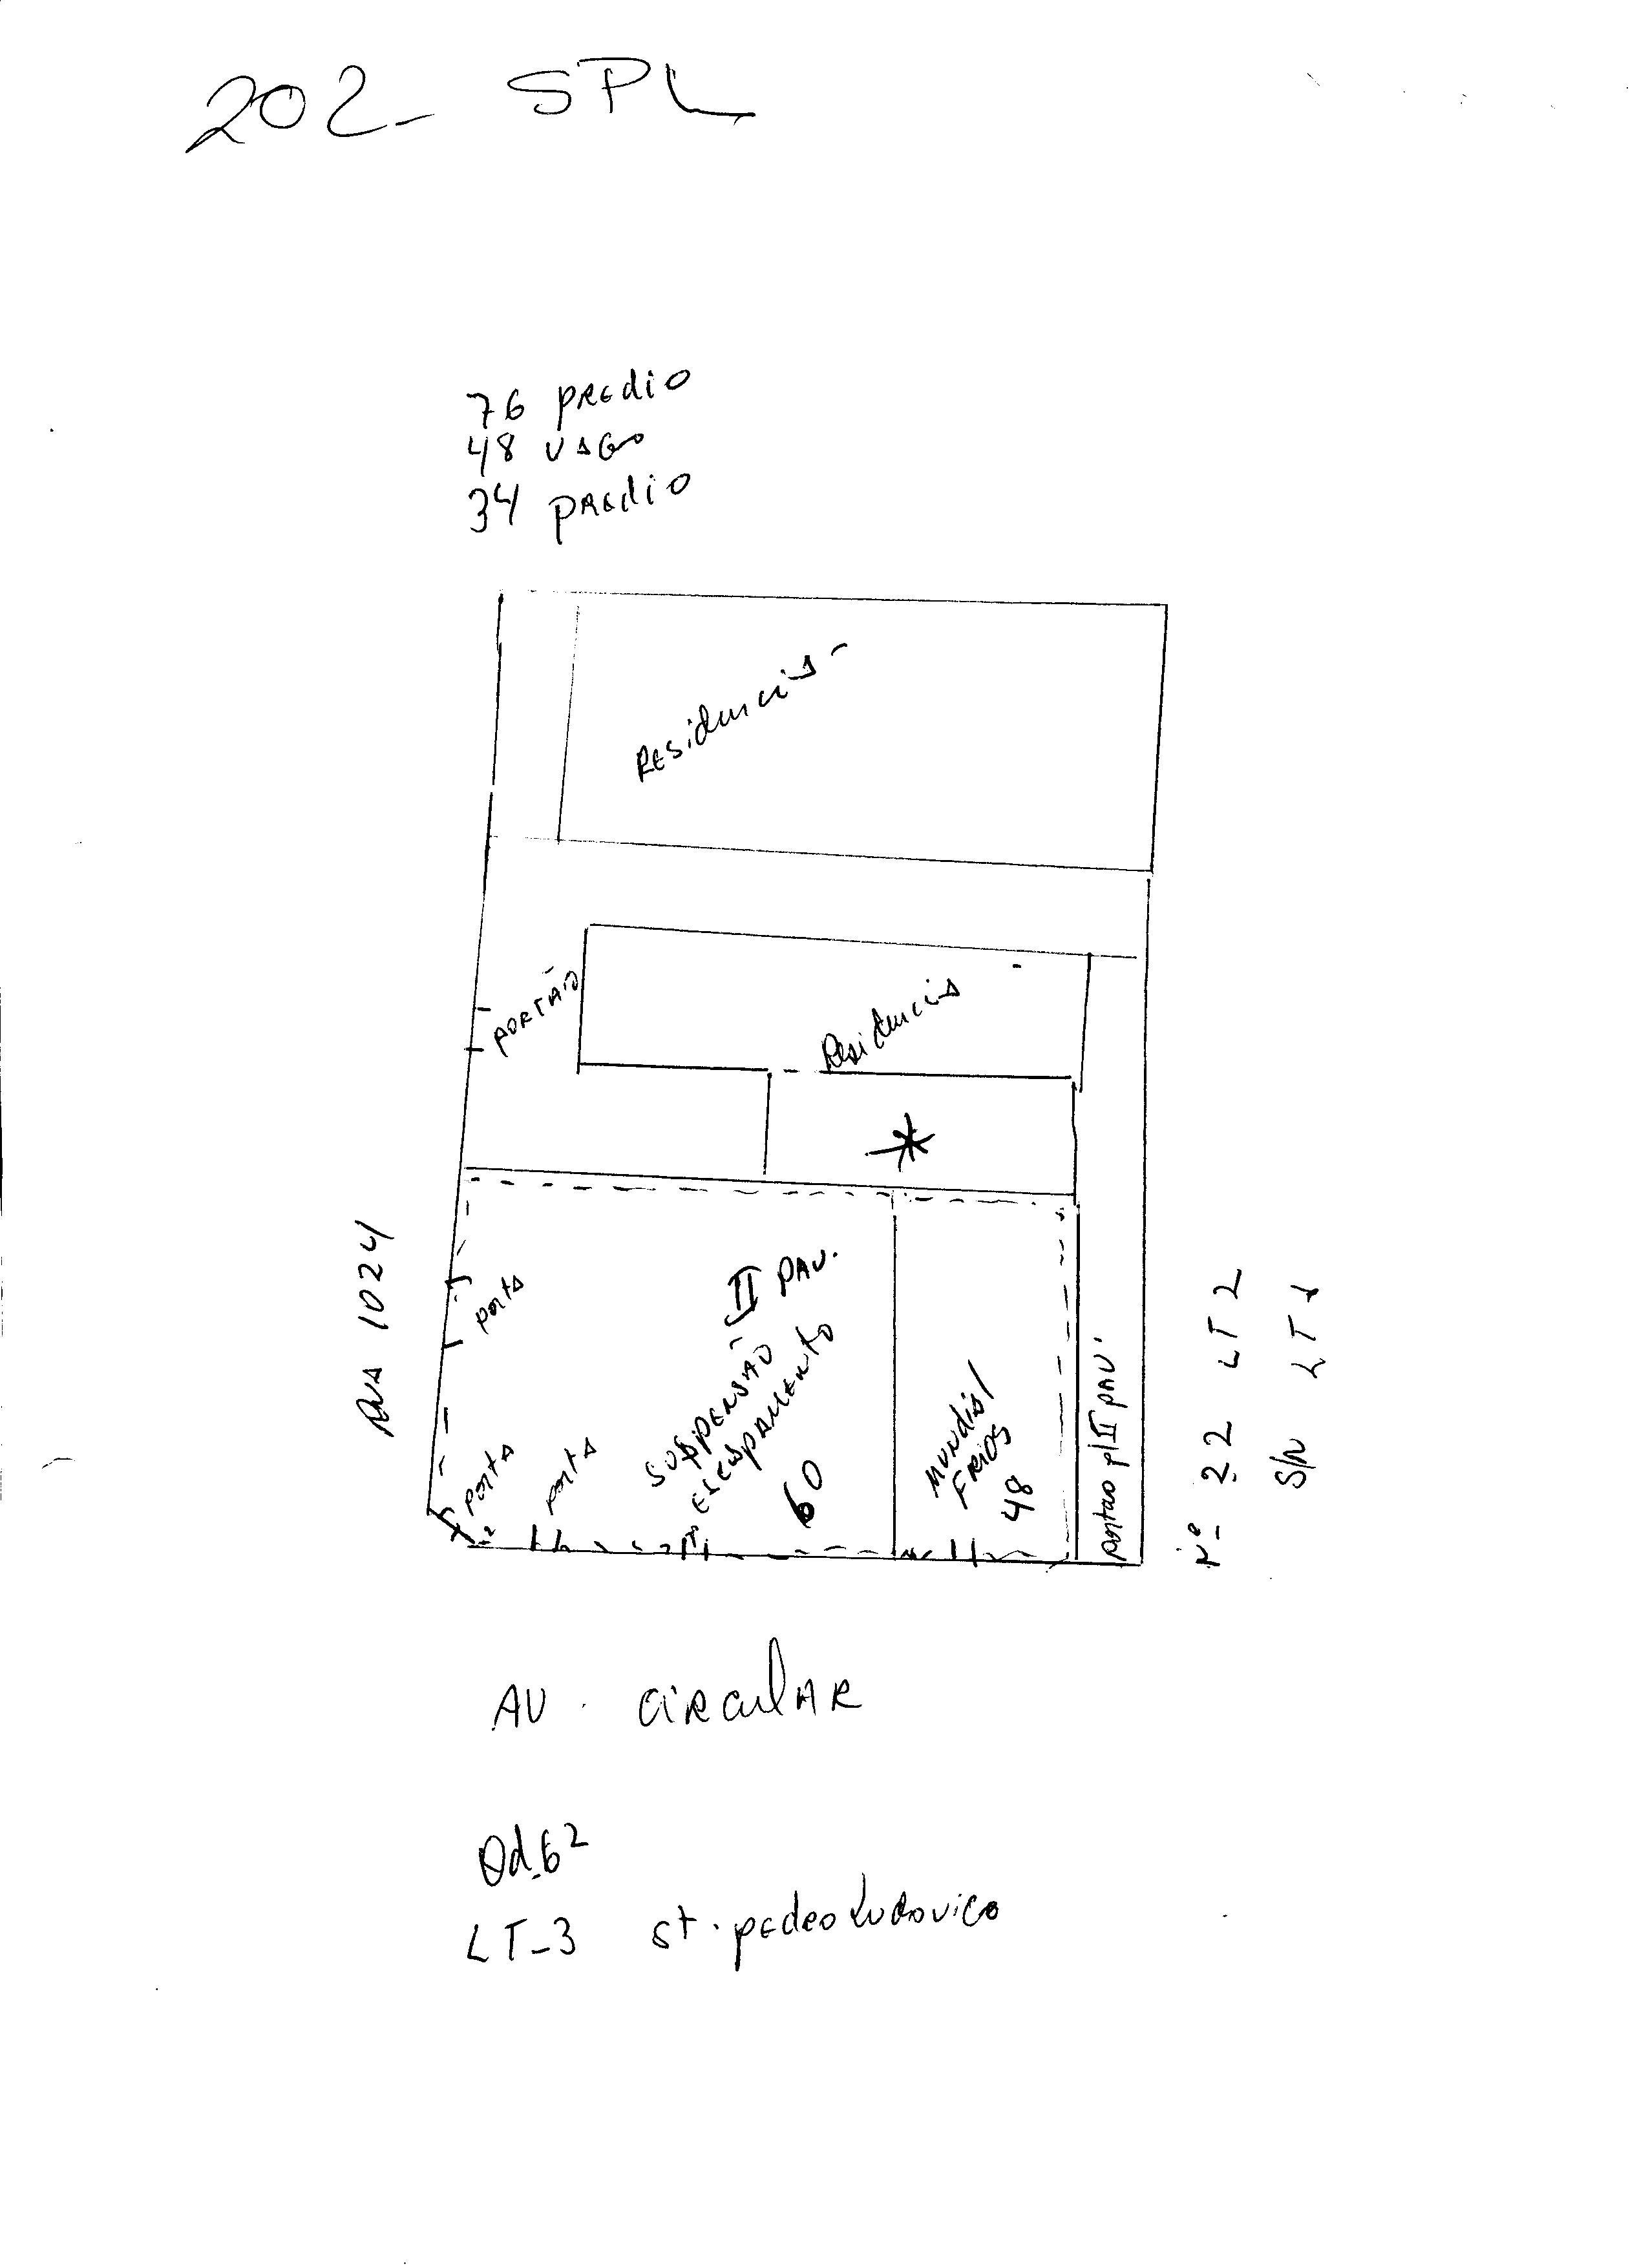 202 - SPL
76 PREdio
48 VAGO
34 PREdio
RESidencia -
PORTÃO
Residencia
RUA 1024
porta
II PAV.
SUSPENSÃO
E ESCAPAMENTO
60
porta
porta
MUNDIAL
FRIOS
48
portao p/ II PAV.
Nº 22 LT 2
S/N LT 1
AV. CIRCULAR
Qd. 62
LT - 3 St. pedro Ludovico